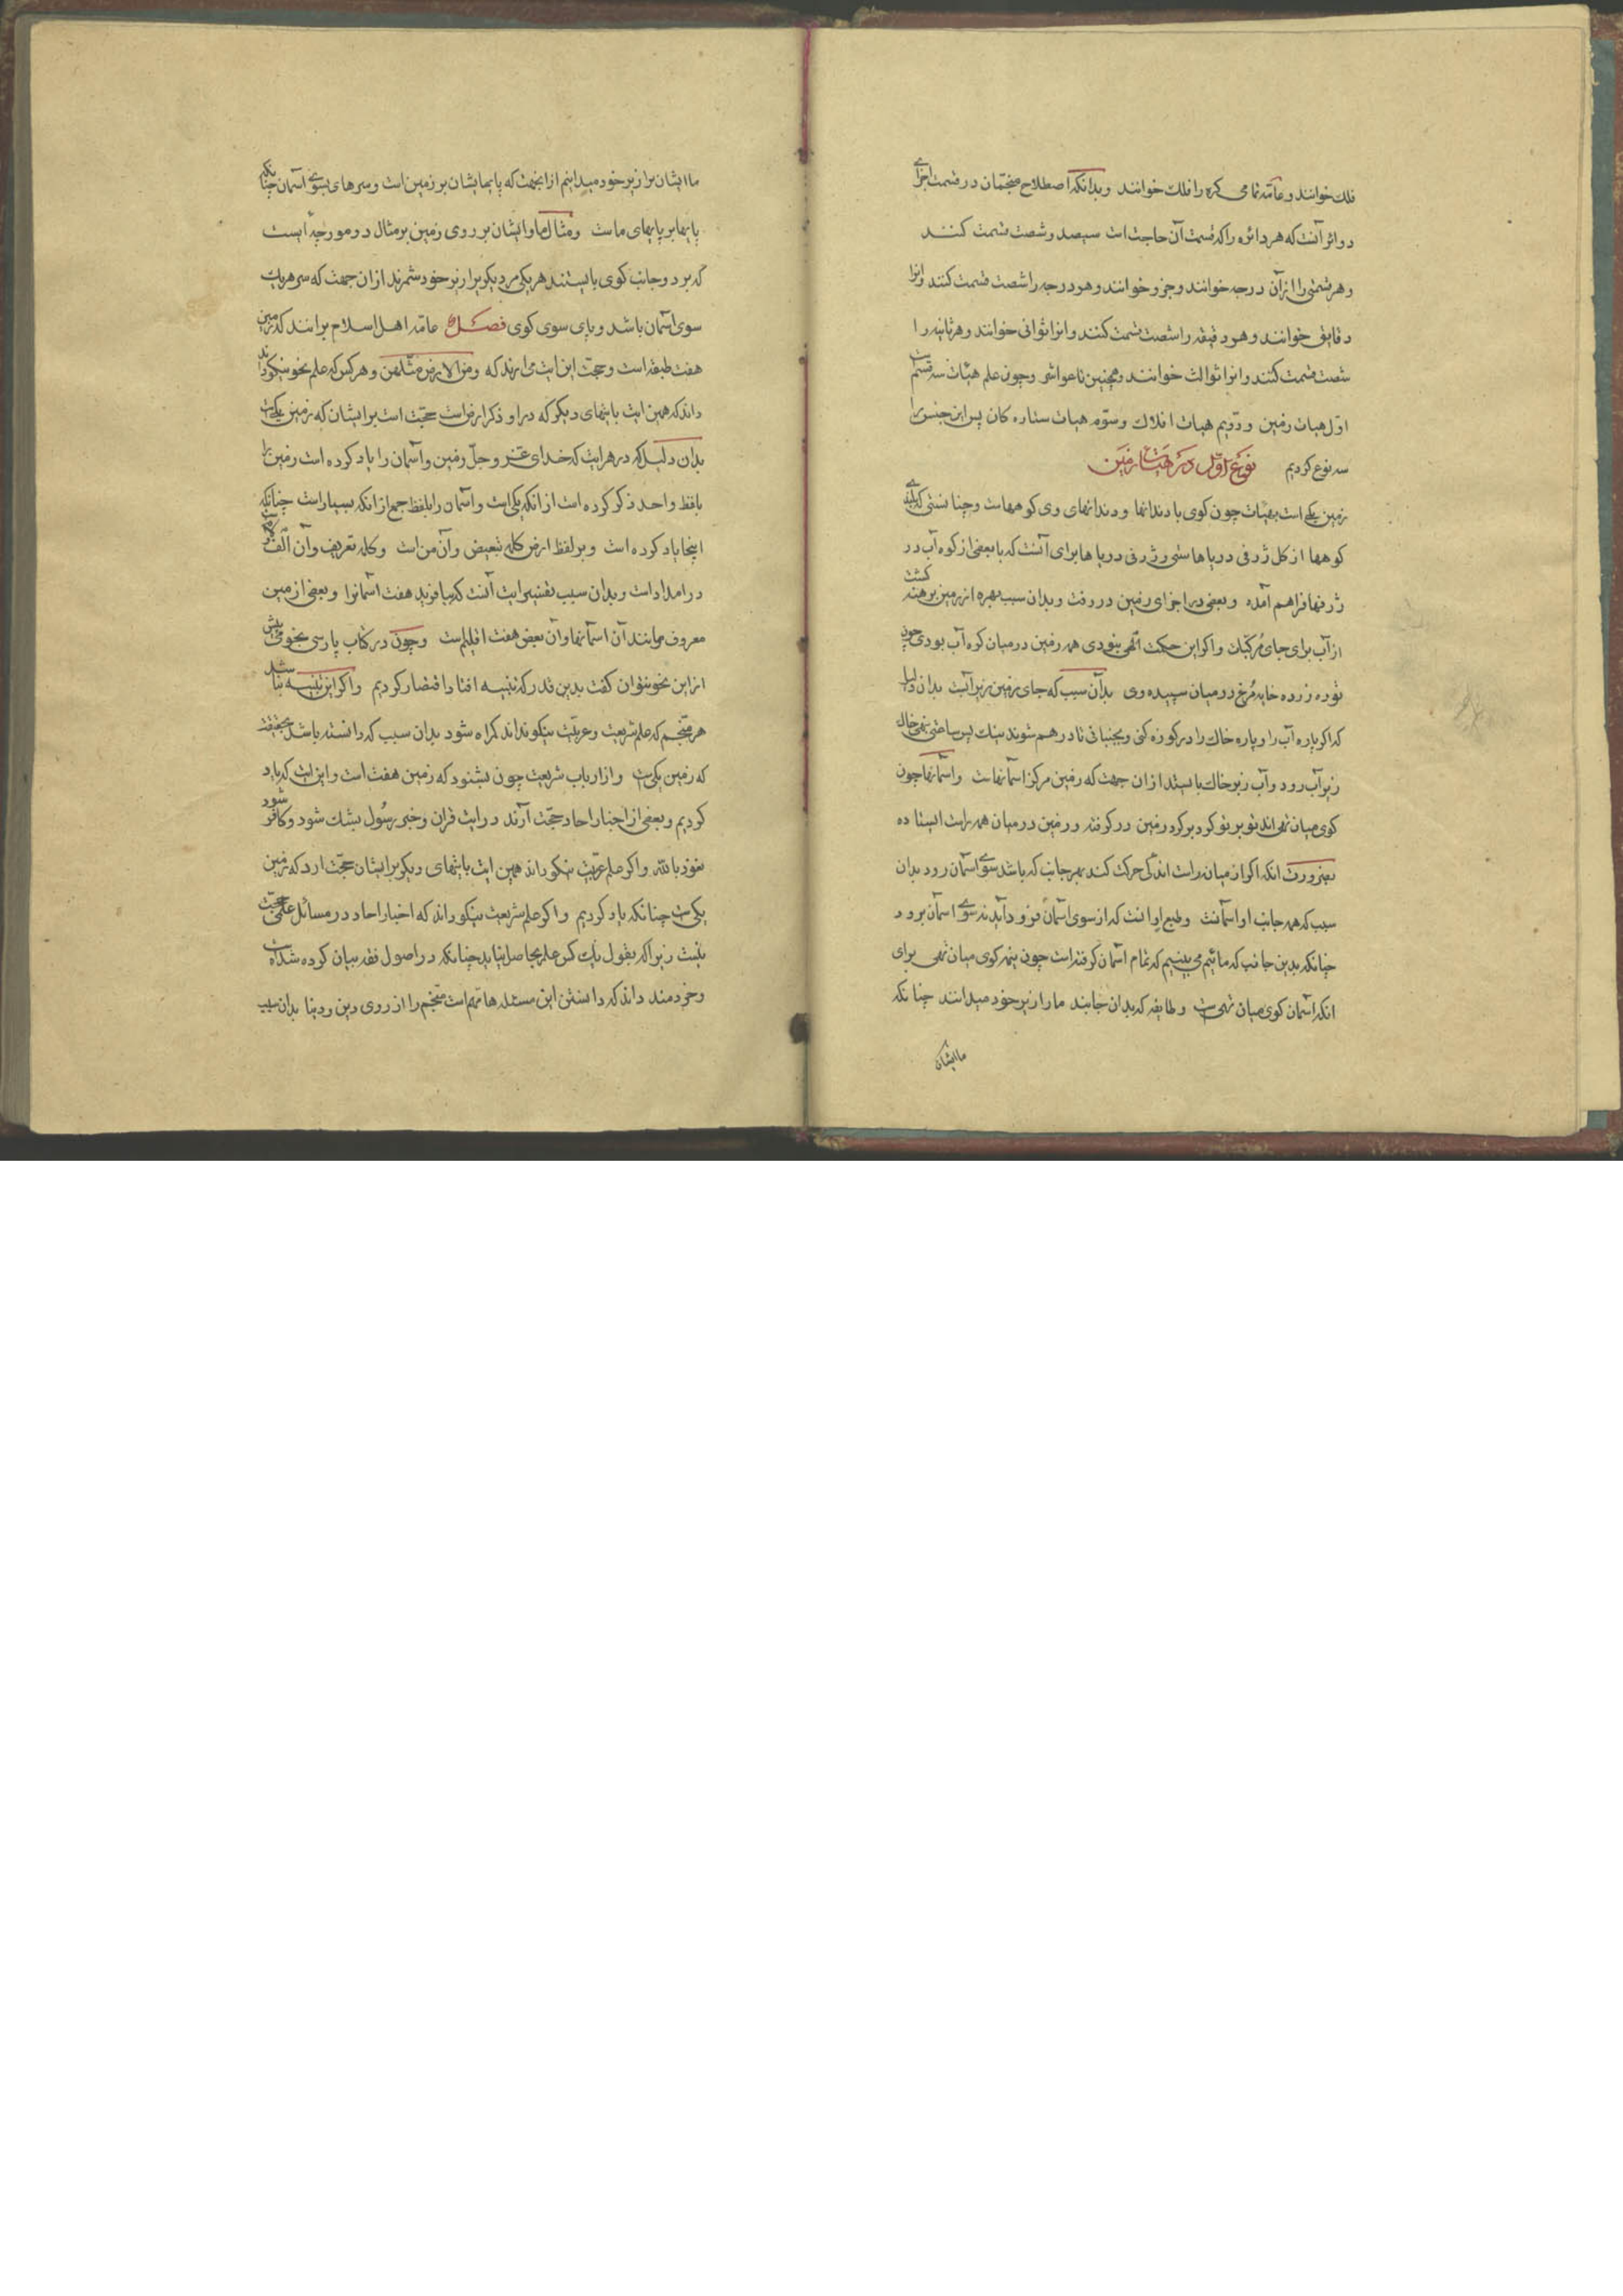 فلک خوانند و عامّه تمامی کره را فلک خوانند وبدانکه اصطلاح منجّمان در قسمت اجزای
دوائر آنست که هر دائره را که قسمت آن حاجت است سیصد و شصت قسمت کنند
و هر قسمتی را از آن درجه خوانند و جزو خوانند و هر درجه را شصت قسمت کنند و انرا
دقایق خوانند و هر دقیقه را شصت قسمت کنند و انرا ثوانی خوانند و هر ثانیه را
شصت قسمت کنند و انرا ثوالث خوانند و همچنین تا عواشر وچون علم هیئات سه قسم است
اوّل هیات زمین و دویم هیات افلاک وسوّم هیات ستاره کان پس این جنس را
سه نوع کردیم نوع اوّل در هیات زمین
زمین یکی است بهیئات چون کوی با دندانها و دندانهای وی کوههاست و چنانستی که بلندی
کوهها از کل ژرفی دریاهاستی و ژرفی دریاها برای آنست که یا بعضی از کوه آب در
ژرفها فراهم آمده و بعضی در اجزای زمین در رفت و بدان سبب بهره از زمین برهنه کشت
از آب برای جای مرکّبات و اکر این حکمت الهی نبودی همه زمین در میان کوه آب بودی چون
توده زرده خایه مرغ در میان سپیده وی بدآن سبب که جای زمین زیر آبست بدان دلیل
که اکر پاره آب را و پاره خاک را در کوزه کنی و بجنبانی تا در هم شوند نیک پس ساعتی بنهی خاک
زیر آب رود و آب زبر خاک بایستد از ان جهت که زمین مرکز اسمانهاست واسمانها چون
کوی میان تهی اند تو بر تو کرد بر کرد زمین در کرفته و زمین در میان همه راست ایستاده
بضرورت انکه اکر از میان راست اندکی حرکت کند بهر جانب که باشد سوی اسمان رود بدان
سبب که همه جانب او اسمانست وطبع او انست که از سوی اسمان فرود آید نه سوی اسمان برود
چنانکه بدین جانب که مائیم می بینیم که تمام اسمان کرفته است چون نیمه کوی میان تهی برای
انکه اسمان کوی میان تهی ست وطایفه که بدان جانبند ما را زیر خود میدانند چنانکه
ما ایشان
ما ایشان را زیر خود میدانیم از انجهت که پایها یشان بر زمین است و سرهای بسوی اسمان چنانکه
پایها بر پایهای ماست ومثال ما و ایشان بر روی زمین بر مثال دو مورچه است
که بر دو جانب کوی بایستند هر یکی مر دیکر را زیر خود شمرند از ان جهت که سر هر یک
سوی اسمان باشد و پای سوی کوی فصل عامّه اهل اسلام برانند که زمین
هفت طبقه است و حجّت این ایت می ارند که ومن الارض مثلهن و هر کس که علم نحو نیکو داند
داند که همین ایت با ایتهای دیکر که در او ذکر ارض است حجّت است بر ایشان که زمین یکی ست
بدان دلیل که در هر ایت که خدای عزّ وجلّ زمین و آسمان را یاد کرده است زمین را
بلفظ واحد ذکر کرده است از انکه یکی است و اسمان را بلفظ جمع از انکه بسیار است چنانکه
اینجا یاد کرده است و بر لفظ ارض کلمه تبعیض و آن من است و کلمه تعریف و آن الف لام
در امداد است و بدان سبب تفسیر ایت آنست که بیافرید هفت اسمانرا و بعضی از مین
معروف مانند آن اسمانها و آن بعض هفت اقلیم است وچون در کتاب پارسی بخوی بیش
از این نحو نتوان کفت بدین قدر که تنبیه افتاد اقتصار کردیم و اکر این تنبیه نباشد
هر منجّم که علم شریعت و عربیّت نیکو نداند کمراه شود بدان سبب که دانسته باشد بحقیقت
که زمین یکی ست و از ارباب شریعت چون بشنود که زمین هفت است و این ایت که یاد
کردیم و بعضی از اخبار احاد حجّت آرند در ایت قران و خبر رسول بشک شود و کافر شود
نعوذ بالله و اکر علم عربیّت نیکو داند همین ایت با ایتهای دیکر بر ایشان حجّت ارد که زمین
یکی ست چنانکه یاد کردیم و اکر علم شریعت نیکو داند که اخبار احاد در مسائل علمی حجّت
نیست زیرا که بقول یک کس علم بحاصل نیاید چنانکه در اصول فقه بیان کرده شده است
و خردمند داند که دانستن این مسئله ها مهم است منجّم را از روی دین و دنیا بدان سبب